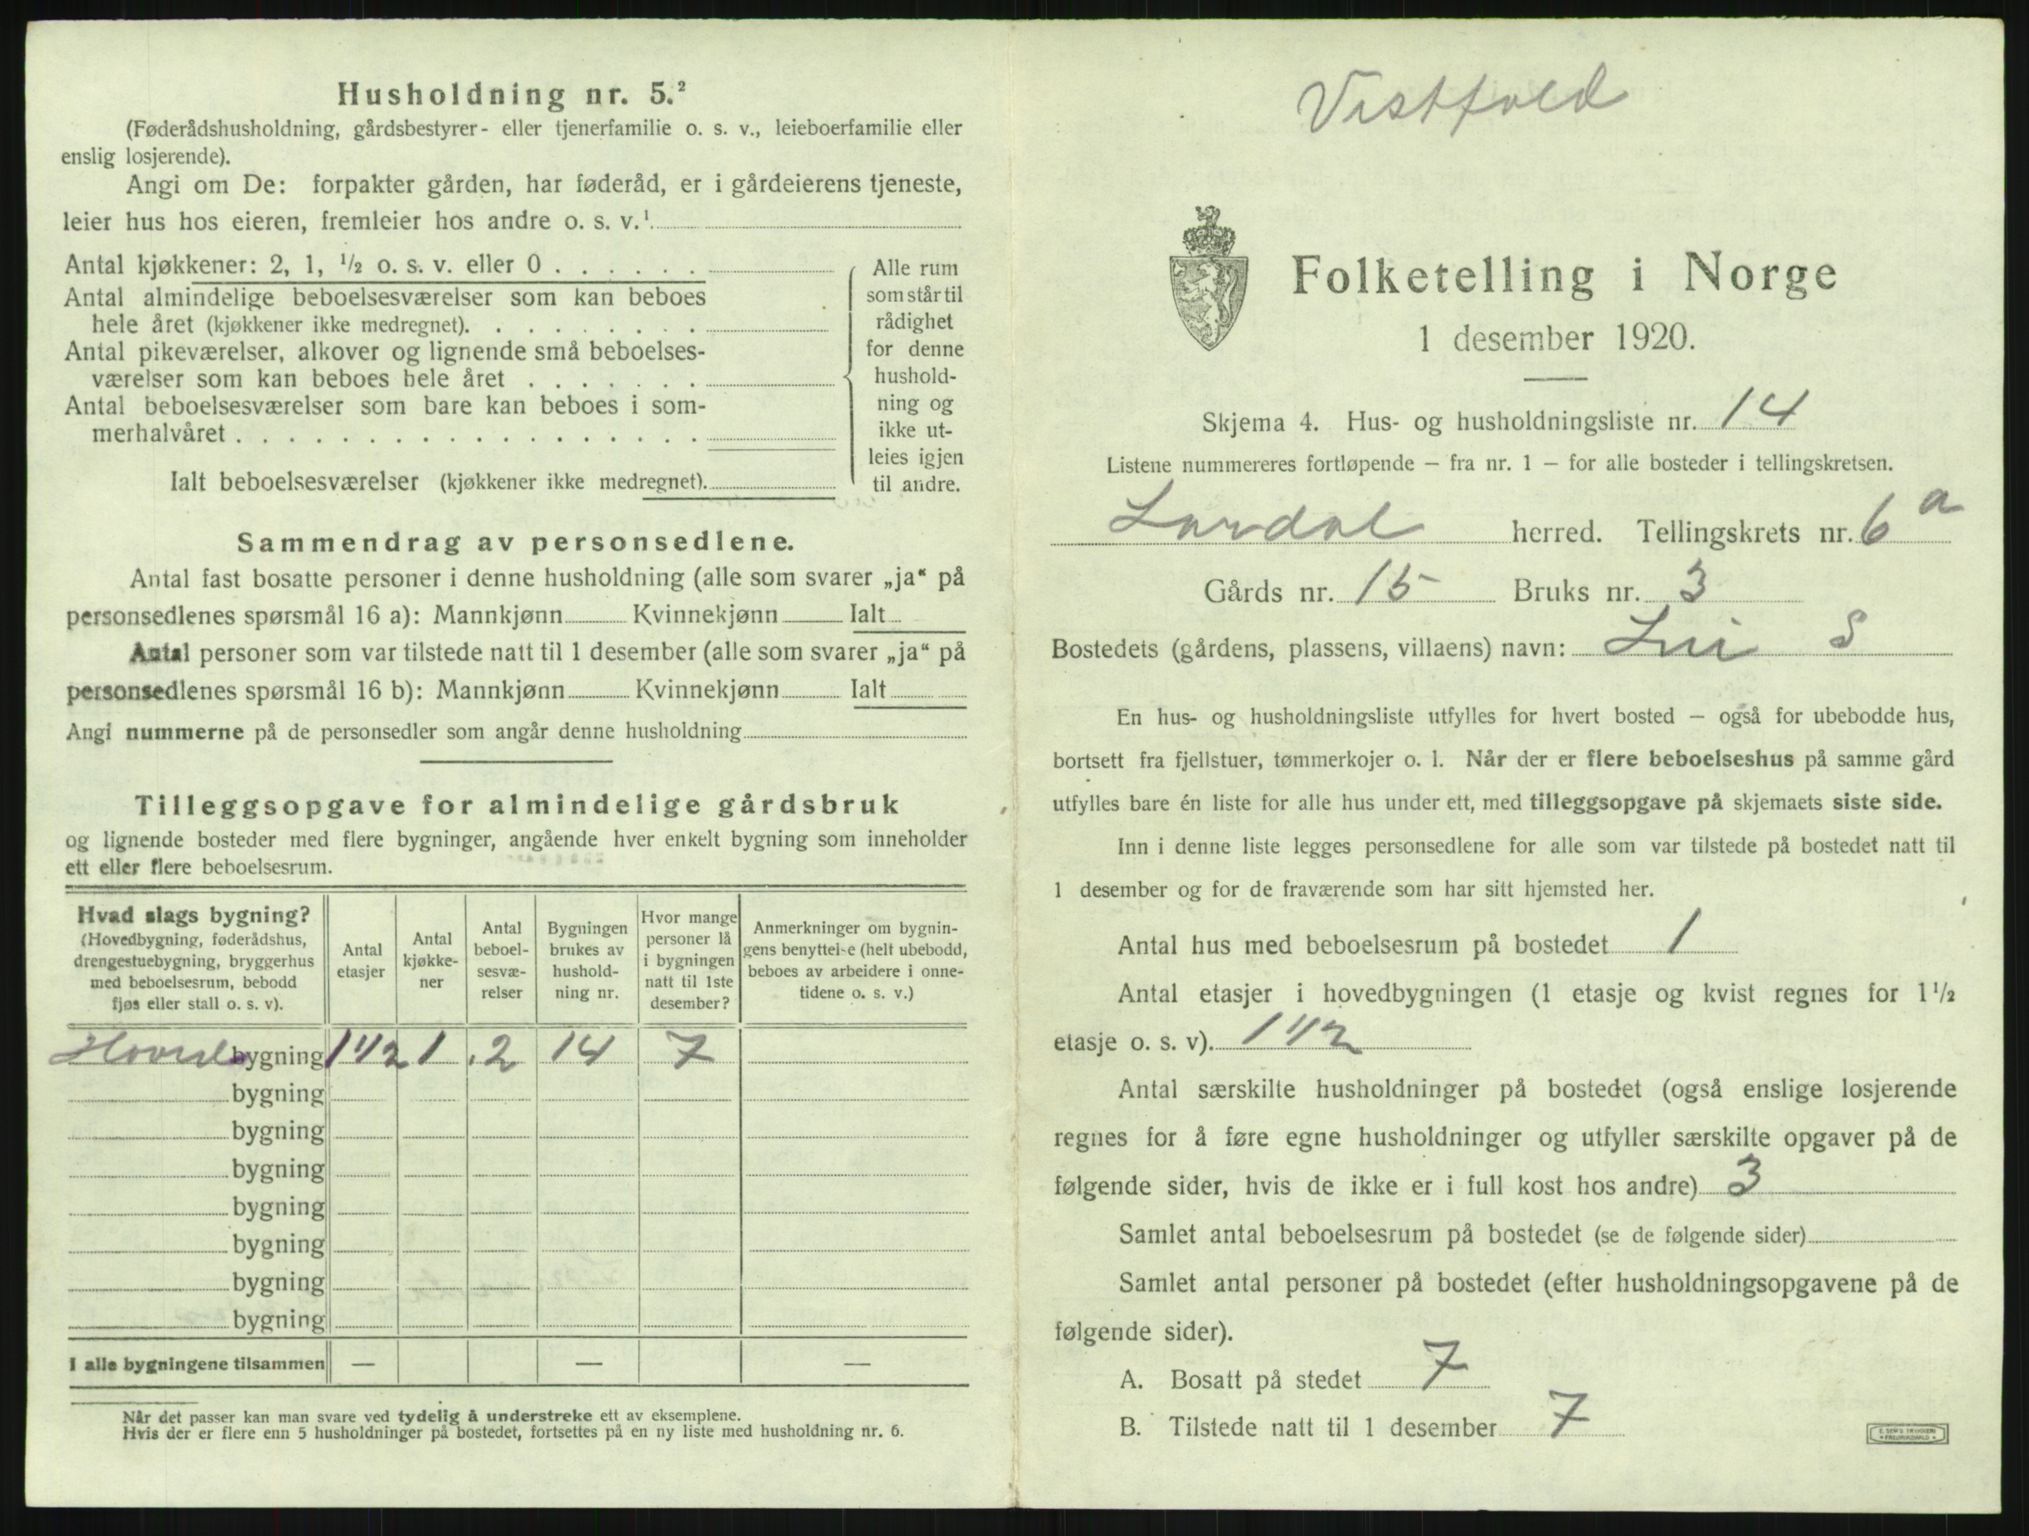 Husholdning nr. 5.²
(Føderådshusholdning, gårdsbestyrer- eller tjenerfamilie o. s. v., leieboerfamilie eller
enslig losjerende).
Angi om De: forpakter gården, har føderåd, er i gårdeierens tjeneste,
leier hus hos eieren, fremleier hos andre o. s. v.¹
Antal kjøkkener: 2, 1, ½ o. s. v. eller 0 . . . . . .
Antal almindelige beboelsesværelser som kan beboes
hele året (kjøkkener ikke medregnet). . . . . . . . .
Antal pikeværelser, alkover og lignende små beboelses-
værelser som kan beboes hele året . . . . . . .
Antal beboelsesværelser som bare kan beboes i som-
merhalvåret . . . . . . . . . . . . . . . . . .
Ialt beboelsesværelser (kjøkkener ikke medregnet).
Alle rum
som står til
rådighet
for denne
hushold-
ning og
ikke ut-
leies igjen
til andre.
Sammendrag av personsedlene.
Antal fast bosatte personer i denne husholdning (alle som svarer „ja“ på
personsedlenes spørsmål 16 a): Mannkjønn Kvinnekjønn Ialt
Antal personer som var tilstede natt til 1 desember (alle som svarer „ja“ på
personsedlenes spørsmål 16 b): Mannkjønn Kvinnekjønn Ialt
Angi nummerne på de personsedler som angår denne husholdning
Tilleggsopgave for almindelige gårdsbruk
og lignende bosteder med flere bygninger, angående hver enkelt bygning som inneholder
ett eller flere beboelsesrum.
Hvad slags bygning?
(Hovedbygning, føderådshus,
drengestuebygning, bryggerhus
med beboelsesrum, bebodd
fjøs eller stall o. s. v).
Antal
etasjer
Antal
kjøkke-
ner
Antal
beboel-
sesvæ-
relser
Bygningen
brukes av
hushold-
ning nr.
Hvor mange
personer lå
i bygningen
natt til 1ste
desember?
Anmerkninger om bygnin-
gens benyttelse (helt ubebodd,
beboes av arbeidere i onne-
tidene o. s. v.)
Hovedbygning 1 1/2 1 2 14 7
bygning
bygning
bygning
bygning
bygning
bygning
bygning
I alle bygningene tilsammen — — —
Når det passer kan man svare ved tydelig å understreke ett av eksemplene.
Hvis der er flere enn 5 husholdninger på bostedet, fortsettes på en ny liste med husholdning nr. 6.
Vestfold
Folketelling i Norge
1 desember 1920.
Skjema 4. Hus- og husholdningsliste nr. 14
Listene nummereres fortløpende – fra nr. 1 – for alle bosteder i tellingskretsen.
Lardal herred. Tellingskrets nr. 6 a
Gårds nr. 15 Bruks nr. 3
Bostedets (gårdens, plassens, villaens) navn: Lui S
En hus- og husholdningsliste utfylles for hvert bosted – også for ubebodde hus,
bortsett fra fjellstuer, tømmerkojer o. l. Når der er flere beboelseshus på samme gård
utfylles bare én liste for alle hus under ett, med tilleggsopgave på skjemaets siste side.
Inn i denne liste legges personsedlene for alle som var tilstede på bostedet natt til
1 desember og for de fraværende som har sitt hjemsted her.
Antal hus med beboelsesrum på bostedet 1
Antal etasjer i hovedbygningen (1 etasje og kvist regnes for 1½
etasje o. s. v). 1 1/2
Antal særskilte husholdninger på bostedet (også enslige losjerende
regnes for å føre egne husholdninger og utfyller særskilte opgaver på de
følgende sider, hvis de ikke er i full kost hos andre) 3
Samlet antal beboelsesrum på bostedet (se de følgende sider)
Samlet antal personer på bostedet (efter husholdningsopgavene på de
følgende sider).
A. Bosatt på stedet 7
B. Tilstede natt til 1 desember 7